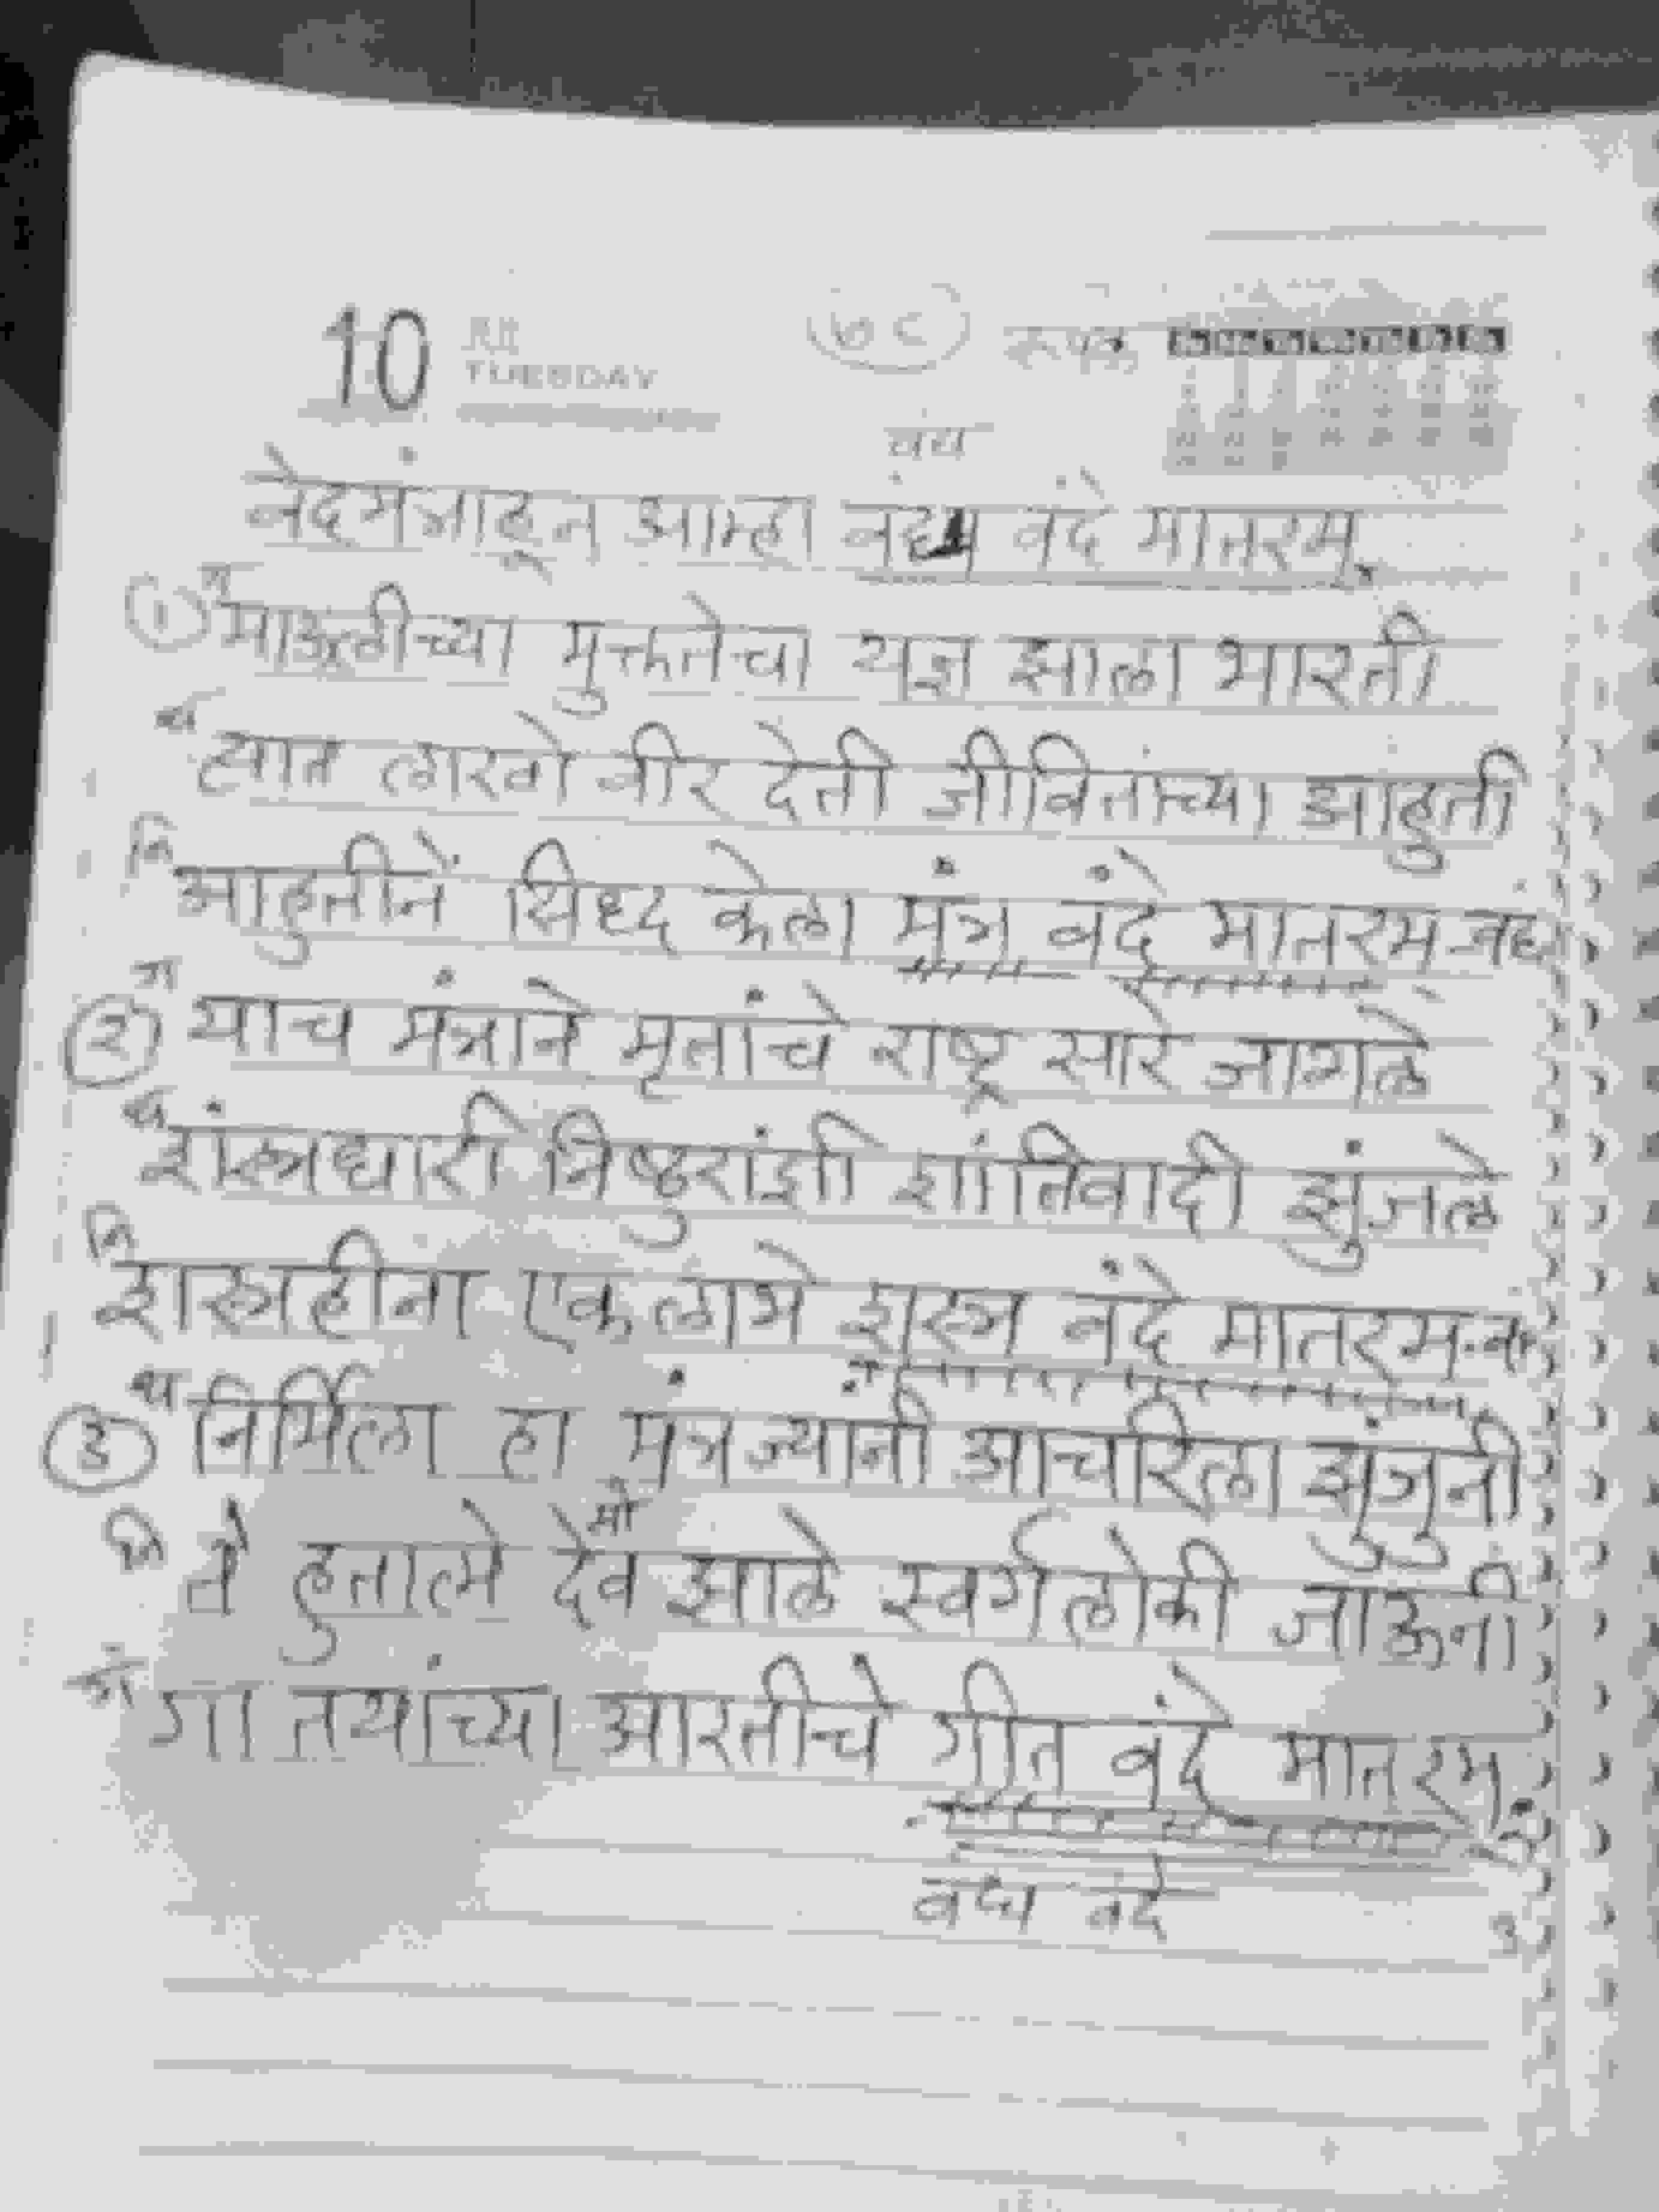 10 TUESDAY ७८ रूपक
वंद्य
वेदमंत्राहून आम्हा वंद्य वंदे मातरम्
① ग माऊलीच्या मुक्ततेचा यज्ञ झाला भारती
ध त्यात लाखो वीर देती जीवितांच्या आहुती
नि आहुतीनें सिध्द केला मंत्र वंदे मातरम वंद्य
② ग याच मंत्राने मृतांचे राष्ट्र सारे जागले
ध शंस्त्रधारी निष्ठुरांशी शांतिवादी झुंजले
नि शस्त्रहीना एक लाभे शस्त्र वंदे मातरम
③ ध निर्मिला हा मंत्र ज्यांनी आचरिला झुंजुनी
मो
नि ते हुतात्मे देव झाले स्वर्गलोकी जाऊनी
गा तयांच्या आरतीचे गीत वंदे मातरम्
वंद्य वंदे